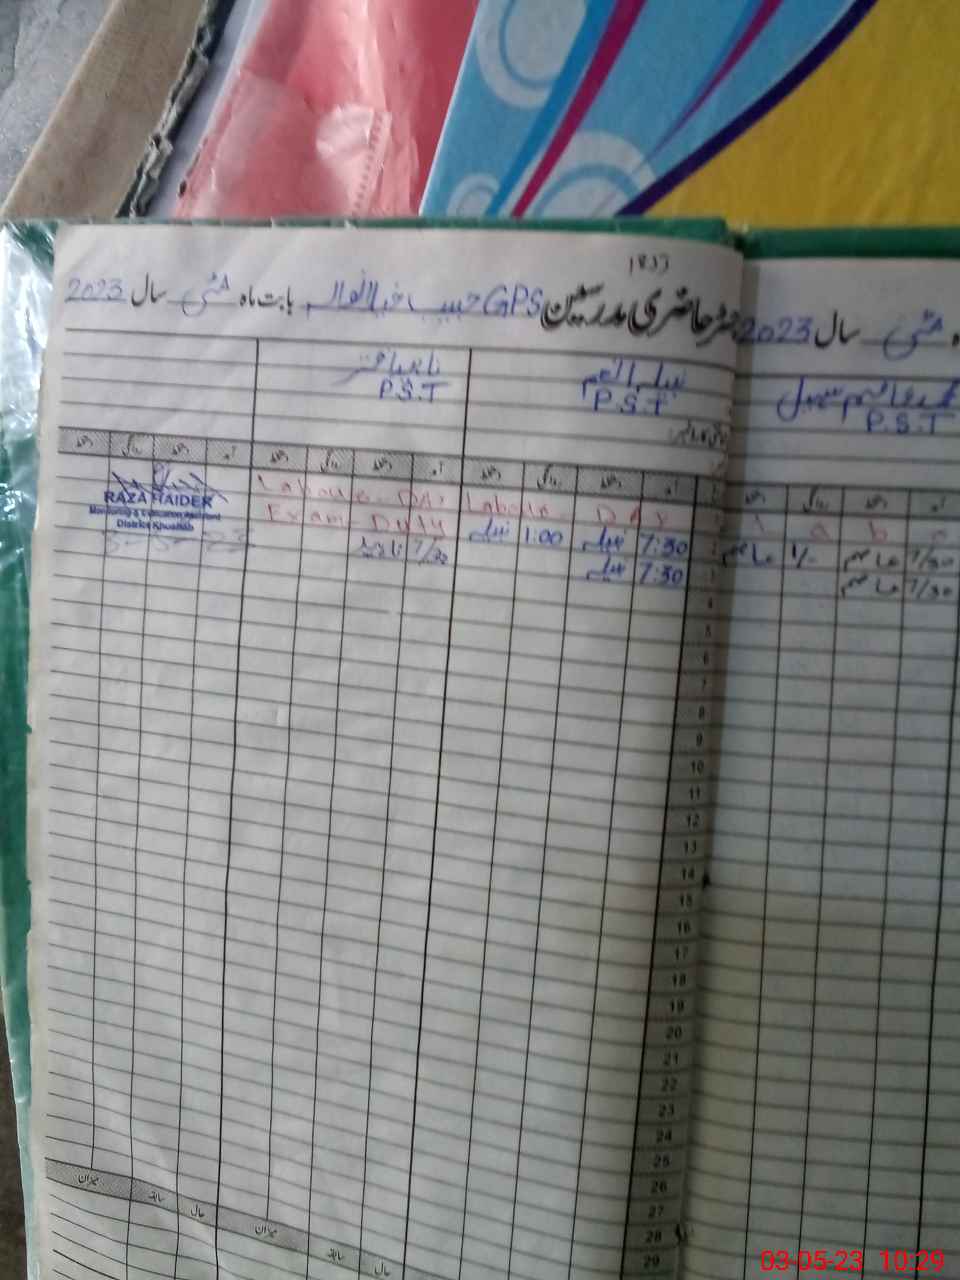 1833
رجسٹر حاضری مدرسین GPS حبیب بابت ماہ مئی سال 2023
ماہ مئی سال 2023
P.S.T
نیلم
P.S.T
محمد عاصم سہیل
P.S.T
آمد دستخط روانگی دستخط آمد دستخط روانگی دستخط آمد دستخط روانگی دستخط
RAZA HAIDER
Monitoring & Evaluation Assistant
District Khushab
Labour Da
Labour Day
L a b o
Exam Duty
7:30 نیلم 1:00 نیلم
7/30 عاصم 1/- عاصم
7/30 ناہید
7:30 نیلم
7/30 عاصم
4
5
6
7
8
9
10
11
12
13
14
15
16
17
18
19
20
21
22
23
24
25
26
27
28
29
حال سابقہ میزان حال سابقہ میزان
03-05-23 10:29